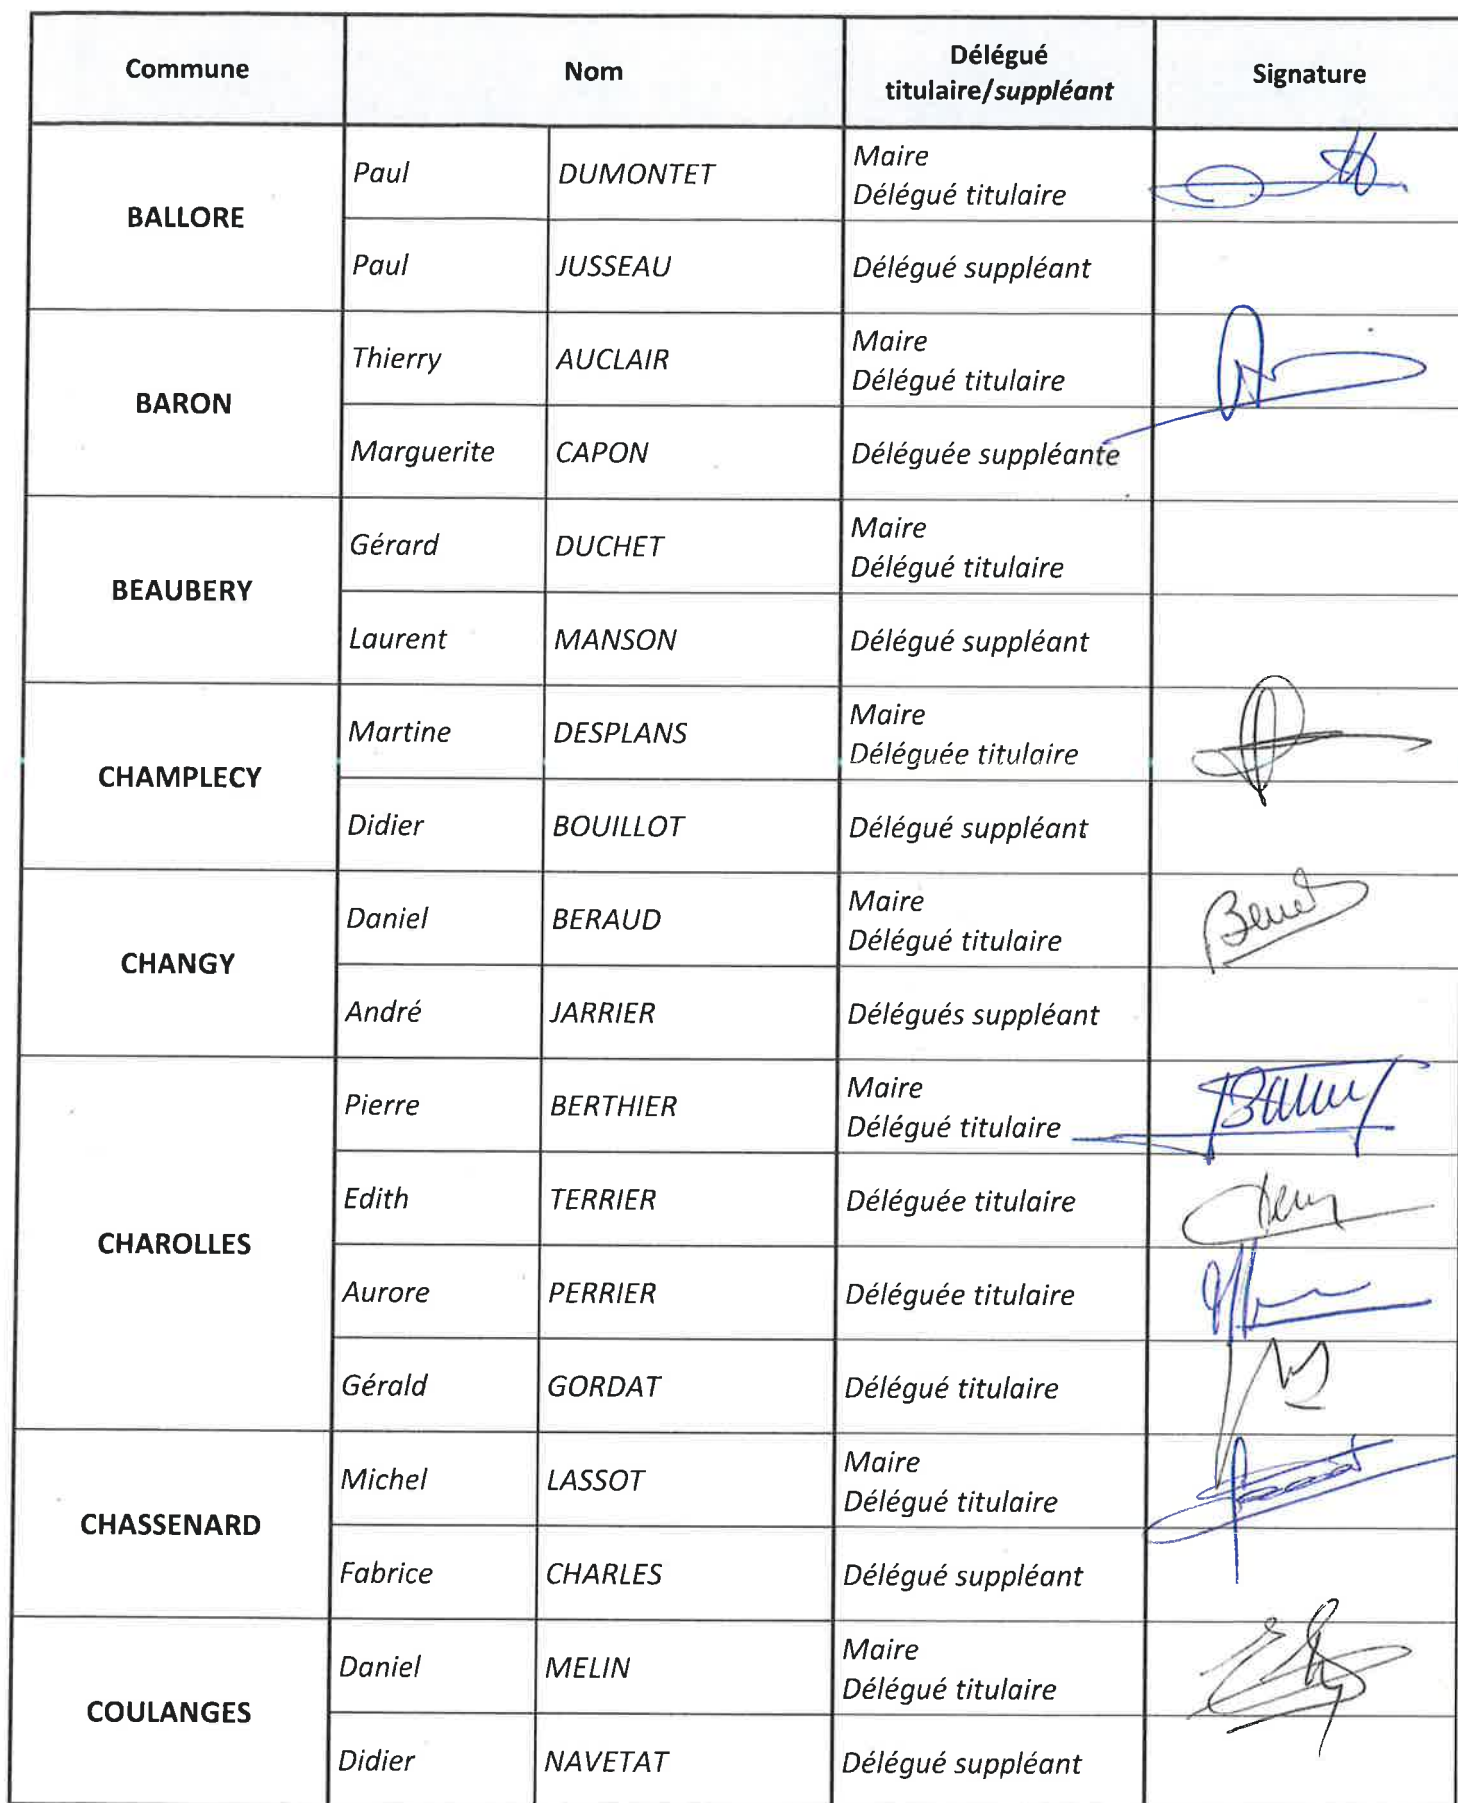 Commune
Nom
Délégué
titulaire/suppléant
Signature
BALLORE
Paul
DUMONTET
Maire
Délégué titulaire
Paul
JUSSEAU
Délégué suppléant
BARON
Thierry
AUCLAIR
Maire
Délégué titulaire
Marguerite
CAPON
Déléguée suppléante
BEAUBERY
Gérard
DUCHET
Maire
Délégué titulaire
Laurent
MANSON
Délégué suppléant
CHAMPLECY
Martine
DESPLANS
Maire
Déléguée titulaire
Didier
BOUILLOT
Délégué suppléant
CHANGY
Daniel
BERAUD
Maire
Délégué titulaire
André
JARRIER
Délégués suppléant
CHAROLLES
Pierre
BERTHIER
Maire
Délégué titulaire
Edith
TERRIER
Déléguée titulaire
Aurore
PERRIER
Déléguée titulaire
Gérald
GORDAT
Délégué titulaire
CHASSENARD
Michel
LASSOT
Maire
Délégué titulaire
Fabrice
CHARLES
Délégué suppléant
COULANGES
Daniel
MELIN
Maire
Délégué titulaire
Didier
NAVETAT
Délégué suppléant